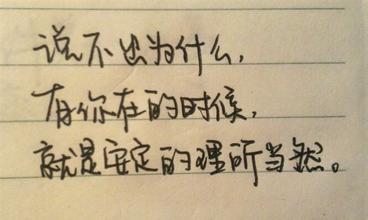 说不出为什么，
有你在的时候，
就是安定的理所当然。